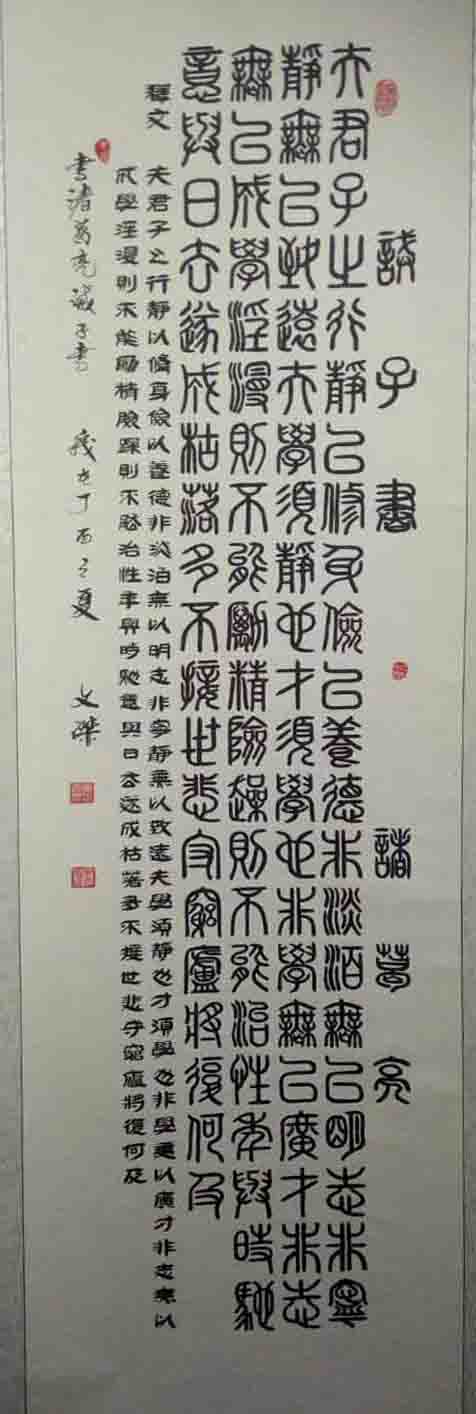 誡子書 諸葛亮
夫君子之行靜以修身儉以養德非淡泊無以明志非寧
靜無以致遠夫學須靜也才須學也非學無以廣才非志
無以成學淫漫則不能勵精險躁則不能治性年與時馳
意與日去遂成枯落多不接世悲守窮廬將復何及
釋文
夫君子之行靜以脩身儉以養德非淡泊無以明志非寧靜無以致遠夫學須靜也才須學也非學無以廣才非志無以
成學淫漫則不能勵精險躁則不能治性年與時馳意與日去遂成枯落多不接世悲守窮廬將復何及
書諸葛亮誡子書 歲在丁酉之夏 文